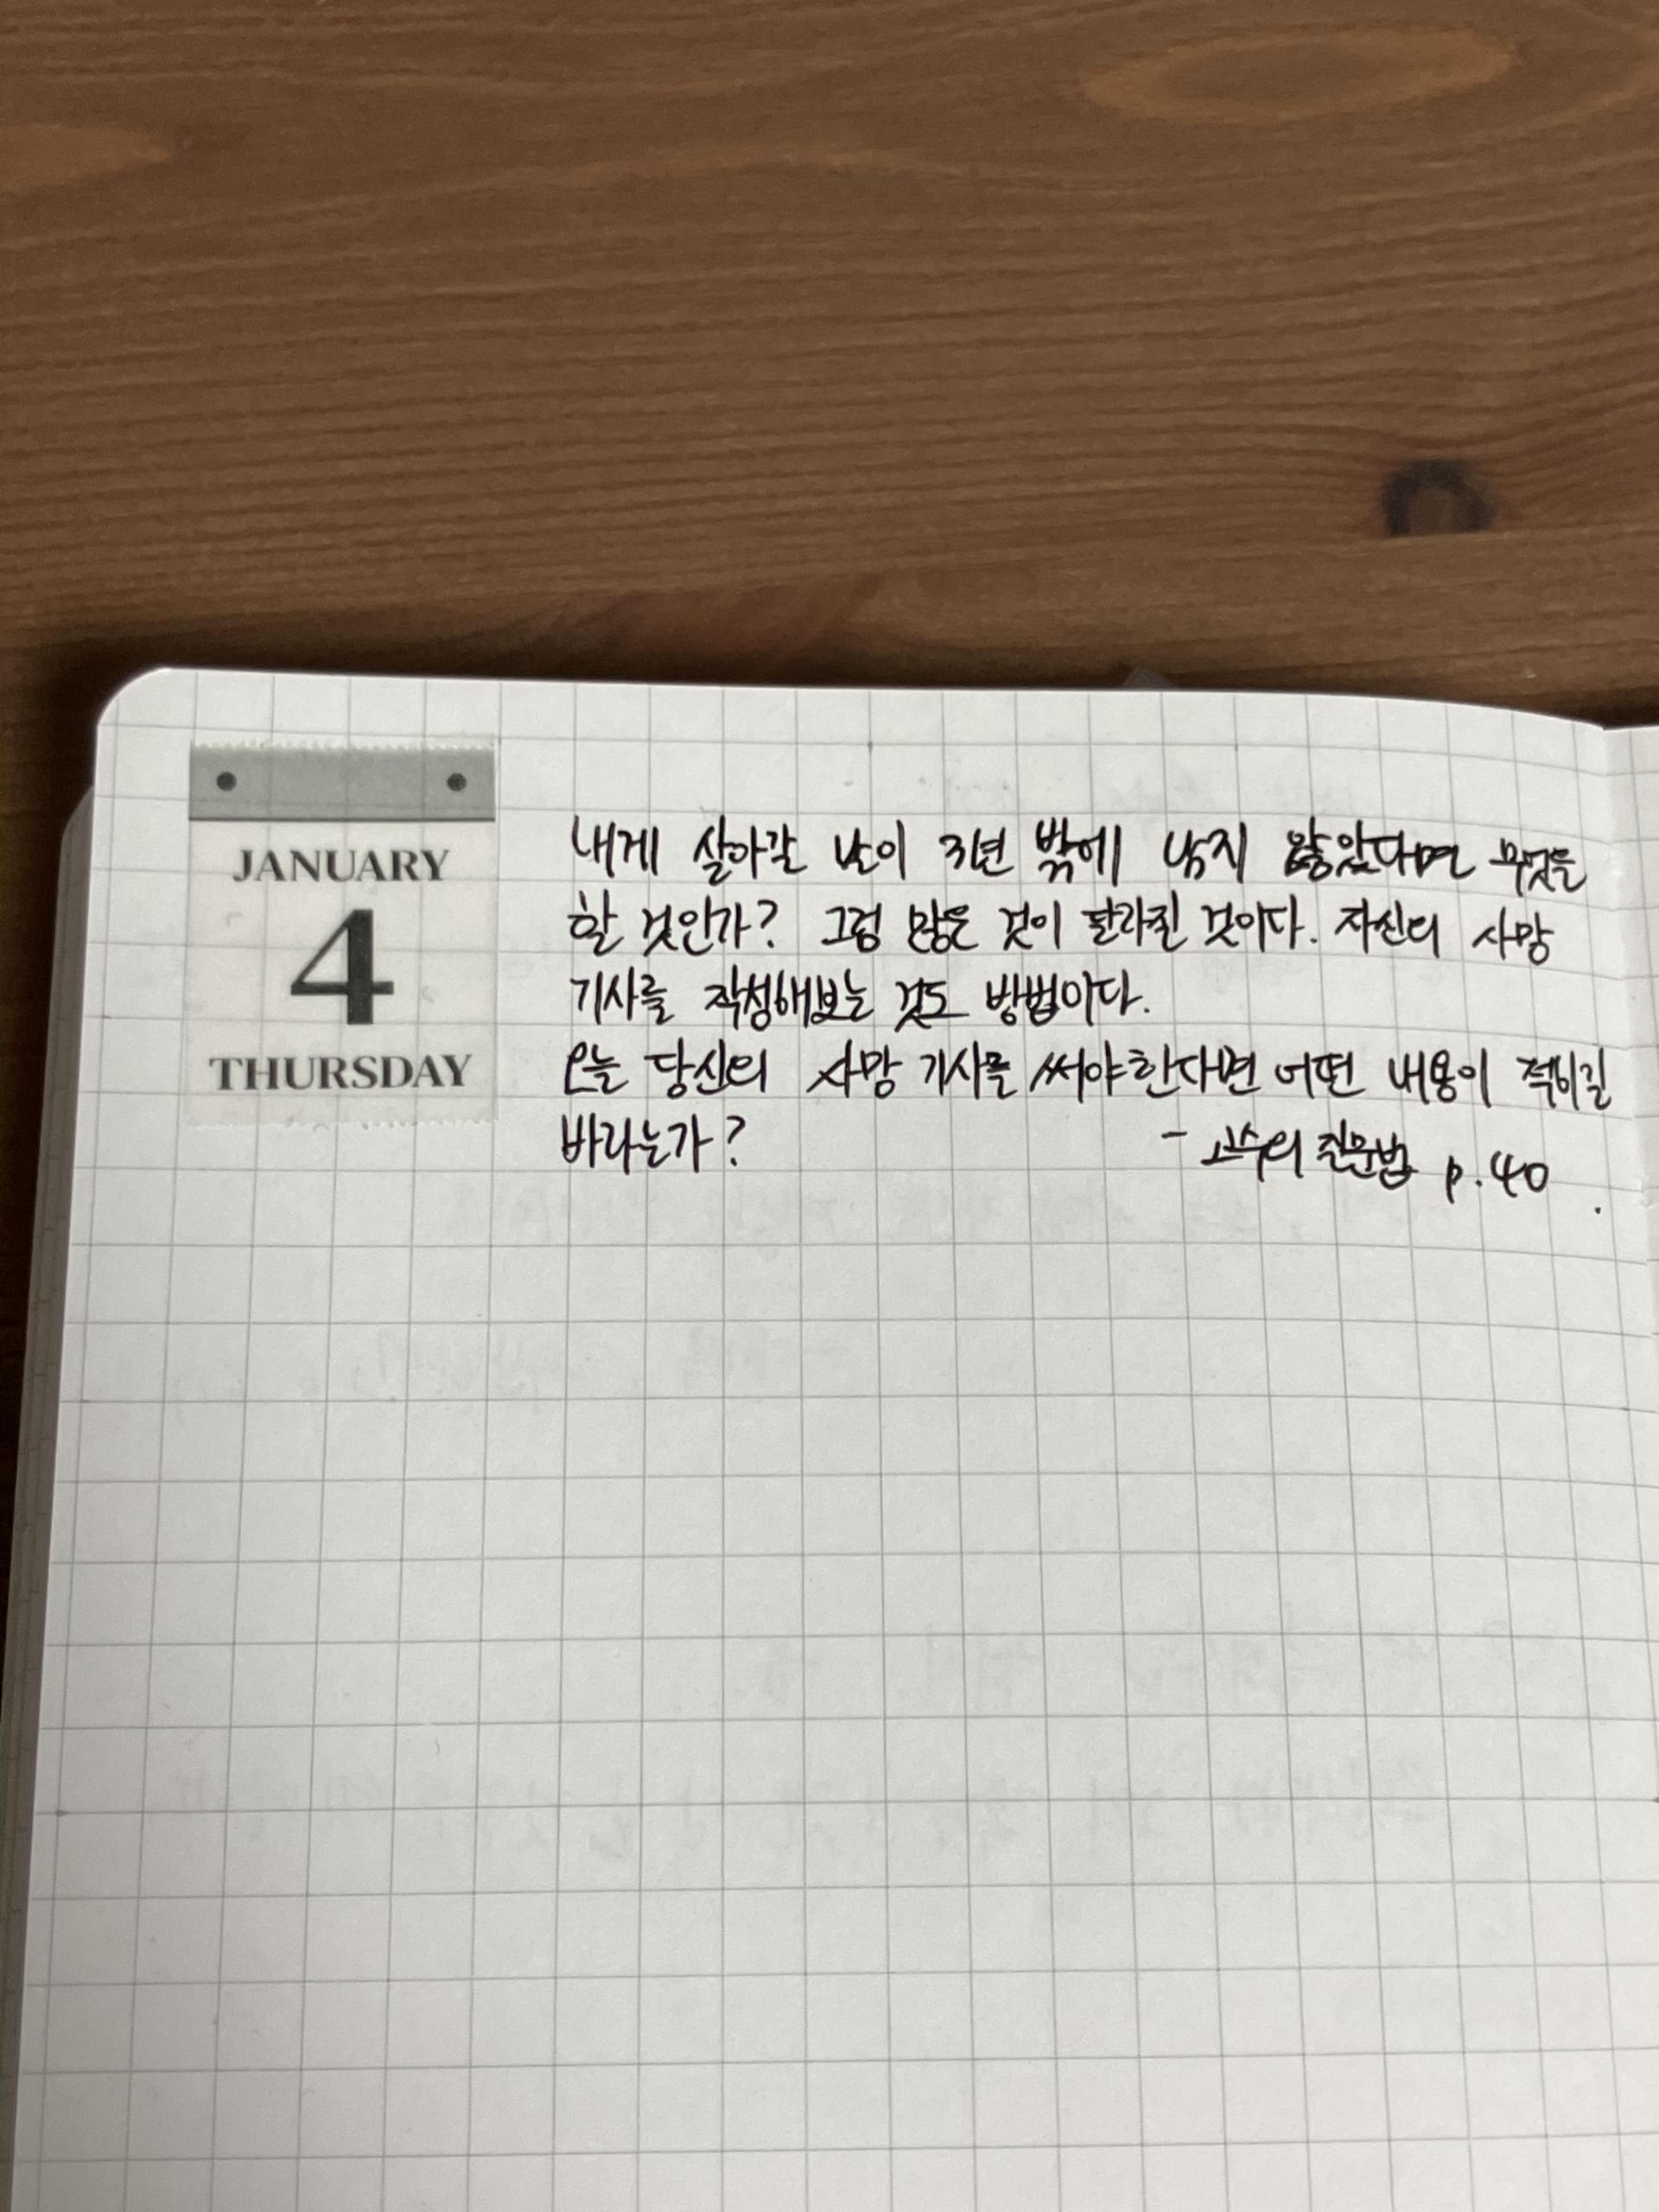 JANUARY
4
THURSDAY
내게 살아갈 날이 3년 밖에 남지 않았다면 무엇을
할 것인가? 그럼 많은 것이 달라질 것이다. 자신의 사망
기사를 작성해보는 것도 방법이다.
오늘 당신의 사망 기사를 써야한다면 어떤 내용이 적히길
바라는가?
- 고수의 질문법 p.40